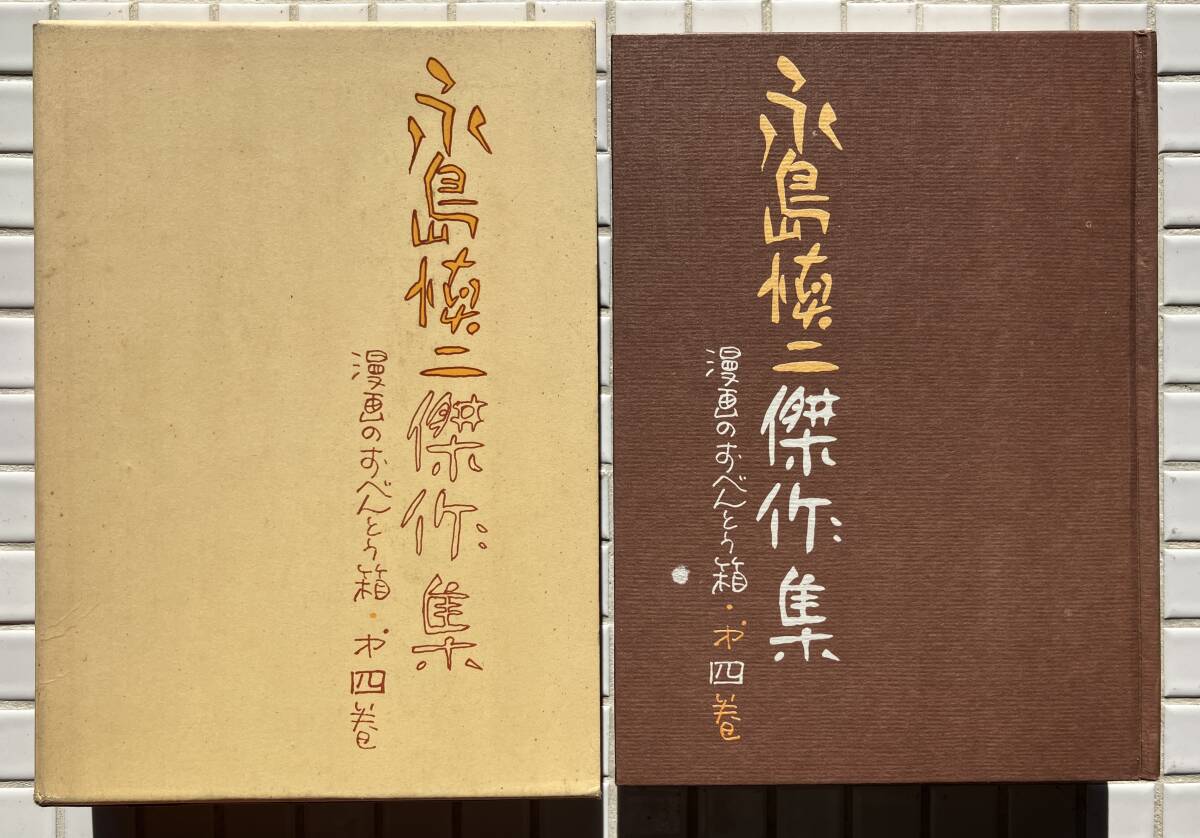 永島慎二傑作集
漫画のおべんとう箱・才四巻
永島慎二傑作集
漫画のおべんとう箱・才四巻